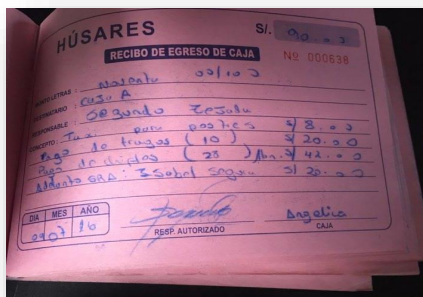 HÚSARES
S/. 90.00
RECIBO DE EGRESO DE CAJA
Nº 000638
MONTO LETRAS : Noventa 00/100
: Caja A
RESPONSABLE : Segundo
CONCEPTO : Taxi para postres s/ 8.00
Pago de tragos (10) s/ 20.00
Pago de (28) s/ 42.00
GRA: Isabel Segura s/ 20.00
DIA MES AÑO
09 07 16
RESP. AUTORIZADO
Angelica
CAJA